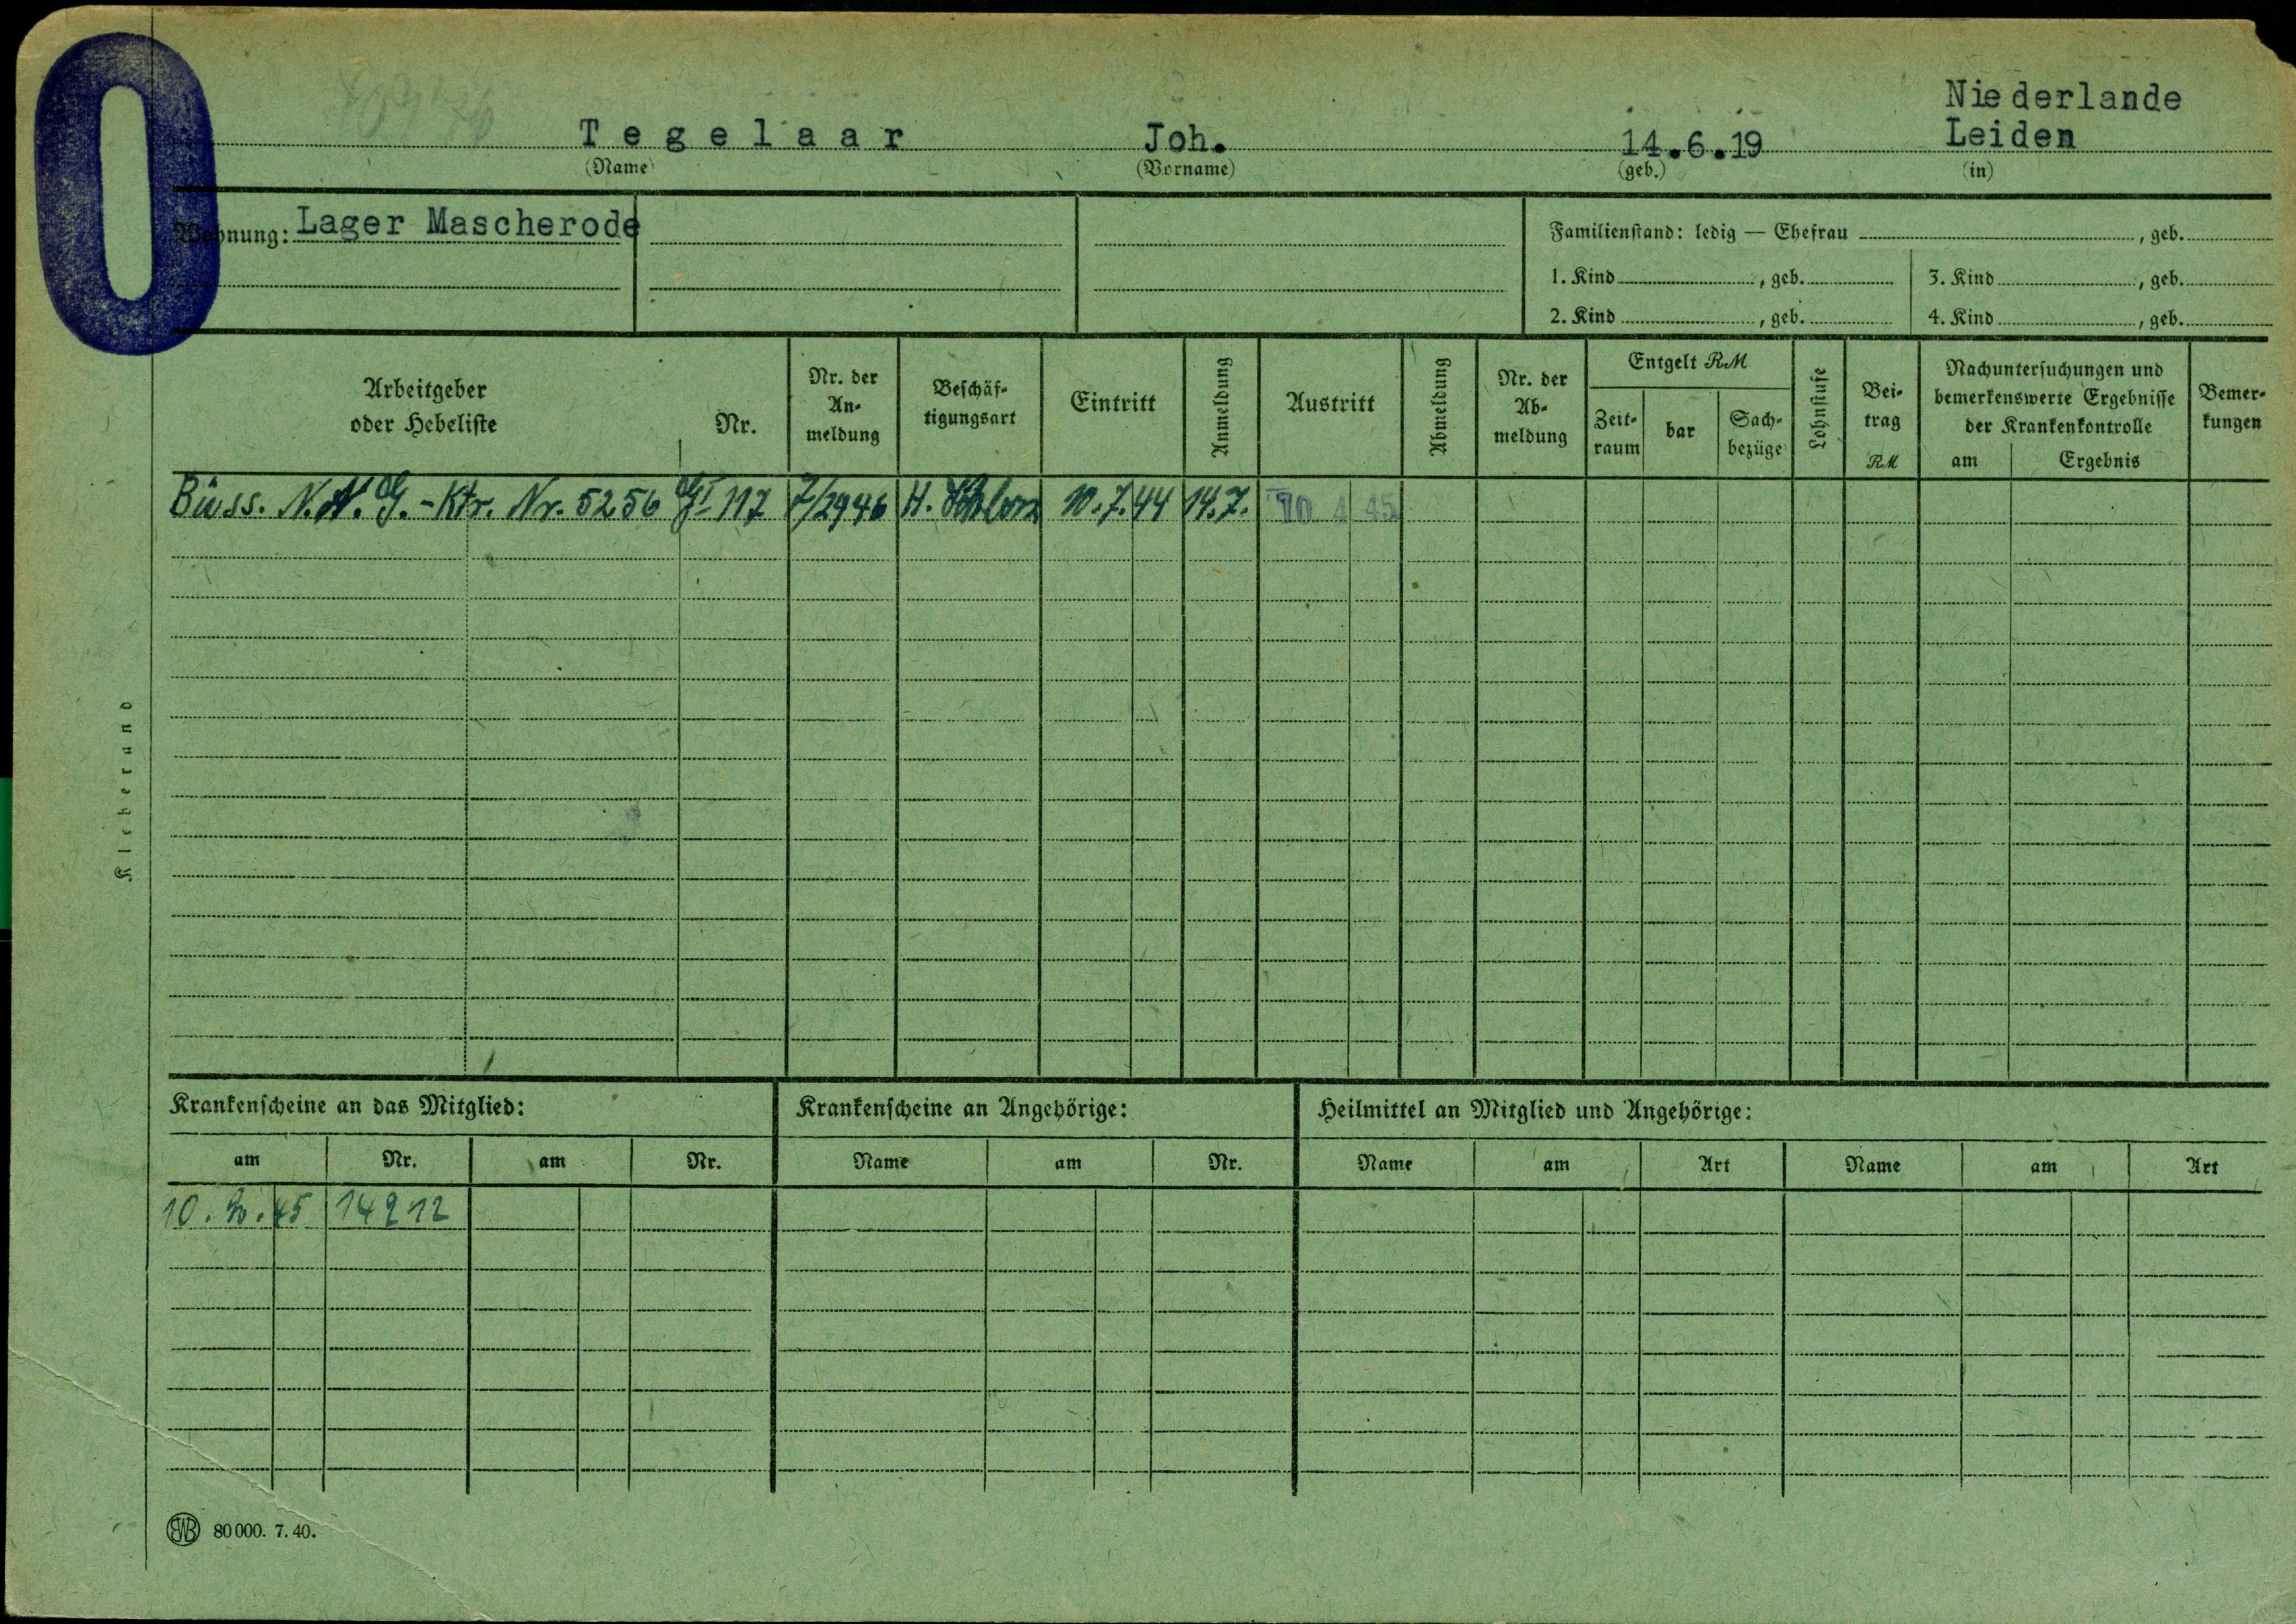 O
Niederlande
Tegelaar Joh. 14.6.19 Leiden
(Name) (Vorname) (geb.) (in)
Wohnung: Lager Mascherode
Familienstand: ledig — Ehefrau , geb.
1. Kind , geb. 3. Kind , geb.
2. Kind , geb. 4. Kind , geb.
Arbeitgeber oder Hebeliste Nr. Nr. der An-meldung Beschäf-tigungsart Eintritt Anmeldung Austritt Abmeldung Nr. der Ab-meldung Entgelt RM Zeit-raum bar Sach-bezüge Lohnstufe Bei-trag RM Nachuntersuchungen und bemerkenswerte Ergebnisse der Krankenkontrolle am Ergebnis Bemer-kungen
Büss. N.A.G.-Ktr. Nr. 5256 117 7/2946 H. 10.7.44 14.7. 10 4 45
Kleberand
Krankenscheine an das Mitglied: Krankenscheine an Angehörige: Heilmittel an Mitglied und Angehörige:
am Nr. am Nr. Name am Nr. Name am Art Name am Art
10. 2. 45 14212
EWB 80000. 7. 40.